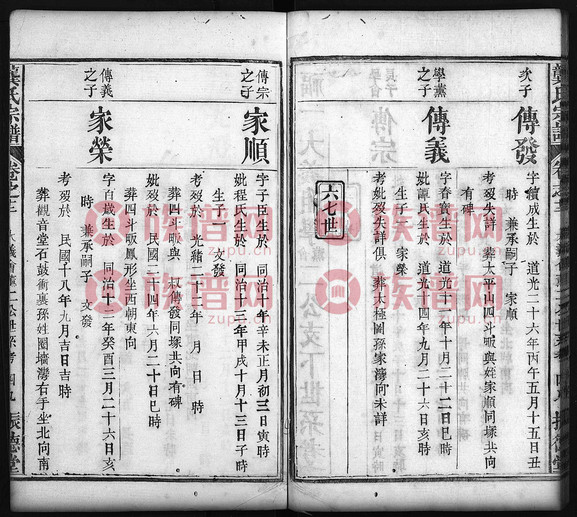 龔氏宗譜
次子
傳發
字續成生於 道光二十六年丙午五月十五日丑
時 兼承嗣子 家順
考歿失詳葬太平山四斗畈與姪家順同塚共向
有碑
學薰之子
傳義
字春寶生於 道光十二年十月二十二日巳時
生子 家榮
妣譚氏生於 道光十四年九月二十二日亥時
考妣歿失詳俱葬太極圖孫家灣向未詳
六七世
傳宗之子
家順
字子臣生於 同治十年辛未正月初三日寅時
妣程氏生於 同治十三年甲戌十月十三日子時
生子 文發
考歿於 光緒二十 年 月 日 時
葬四斗畈與 傳發同塚共向有碑
妣歿於 民國二十四年六月二十日巳時
葬四斗畈鳳形坐西朝東向
傳義之子
家榮
字百 生於 同治十二年癸酉三月二十六日亥
時 兼承嗣子 文發
考歿於 民國十八年九月吉日吉時
葬觀音堂石鼓衝裏孫姓園墻灣右手坐北向南
龔氏宗譜
卷之二
振德堂
族谱网
zupu.cn